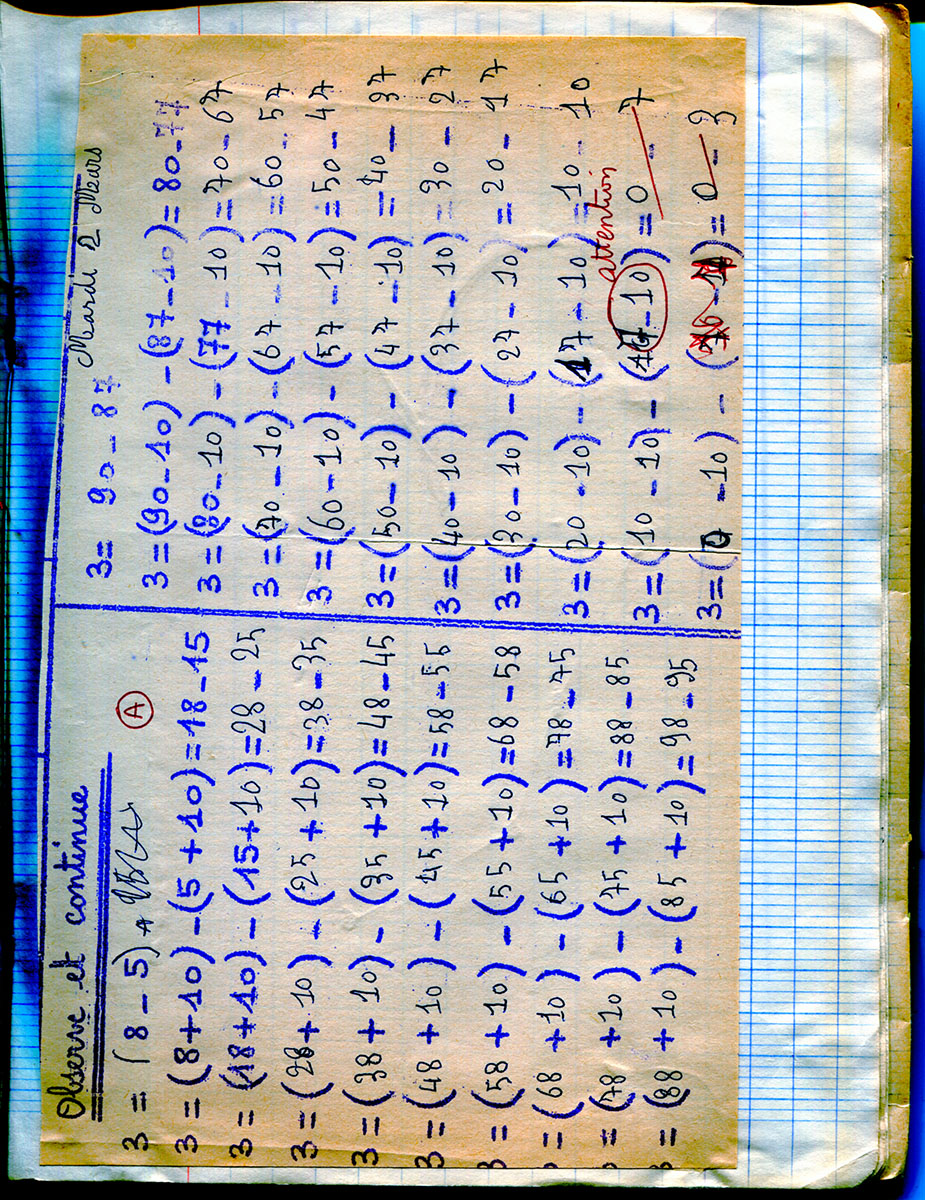 Observe et continue
3 = (8 - 5)
A
3 = (8+10) - (5+10) = 18-15
3 = (18+10) - (15+10) = 28 - 25
3 = (28+10) - (25+10) = 38-35
3 = (38+10) - (35+10) = 48-45
3 = (48+10) - (45+10) = 58-55
3 = (58+10) - (55+10) = 68-58
= (68+10) - (65+10) = 78-75
= (78+10) - (75+10) = 88-85
= (88+10) - (85+10) = 98-95
Mardi 2 Mars
3 = 90 - 87
3 = (90-10) - (87-10) = 80-77
3 = (80-10) - (77-10) = 70-67
3 = (70-10) - (67-10) = 60-57
3 = (60-10) - (57-10) = 50-47
3 = (50-10) - (47-10) = 40-37
3 = (40-10) - (37-10) = 30-27
3 = (30-10) - (27-10) = 20-17
3 = (20-10) - (17-10) = 10-10
attention
3 = (10-10) - (17-10) = 0-7
3 = ( -10) - ( ) = 0-3